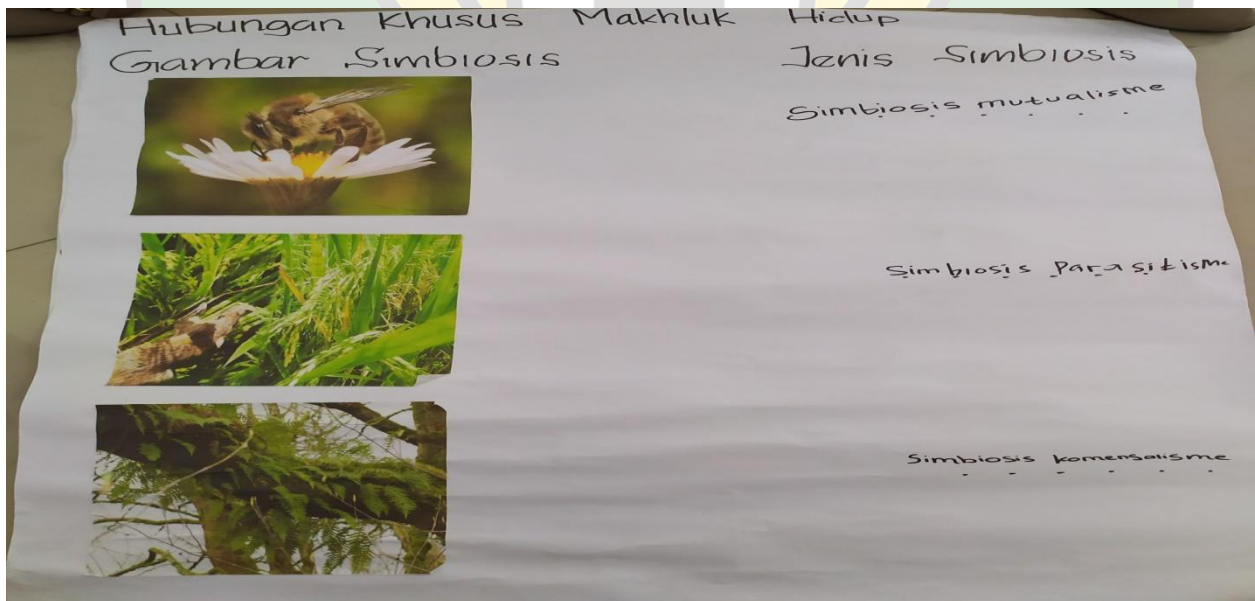 Hubungan Khusus Makhluk Hidup
Gambar Simbiosis Jenis Simbiosis
Simbiosis mutualisme
Simbiosis Parasitisme
Simbiosis komensalisme